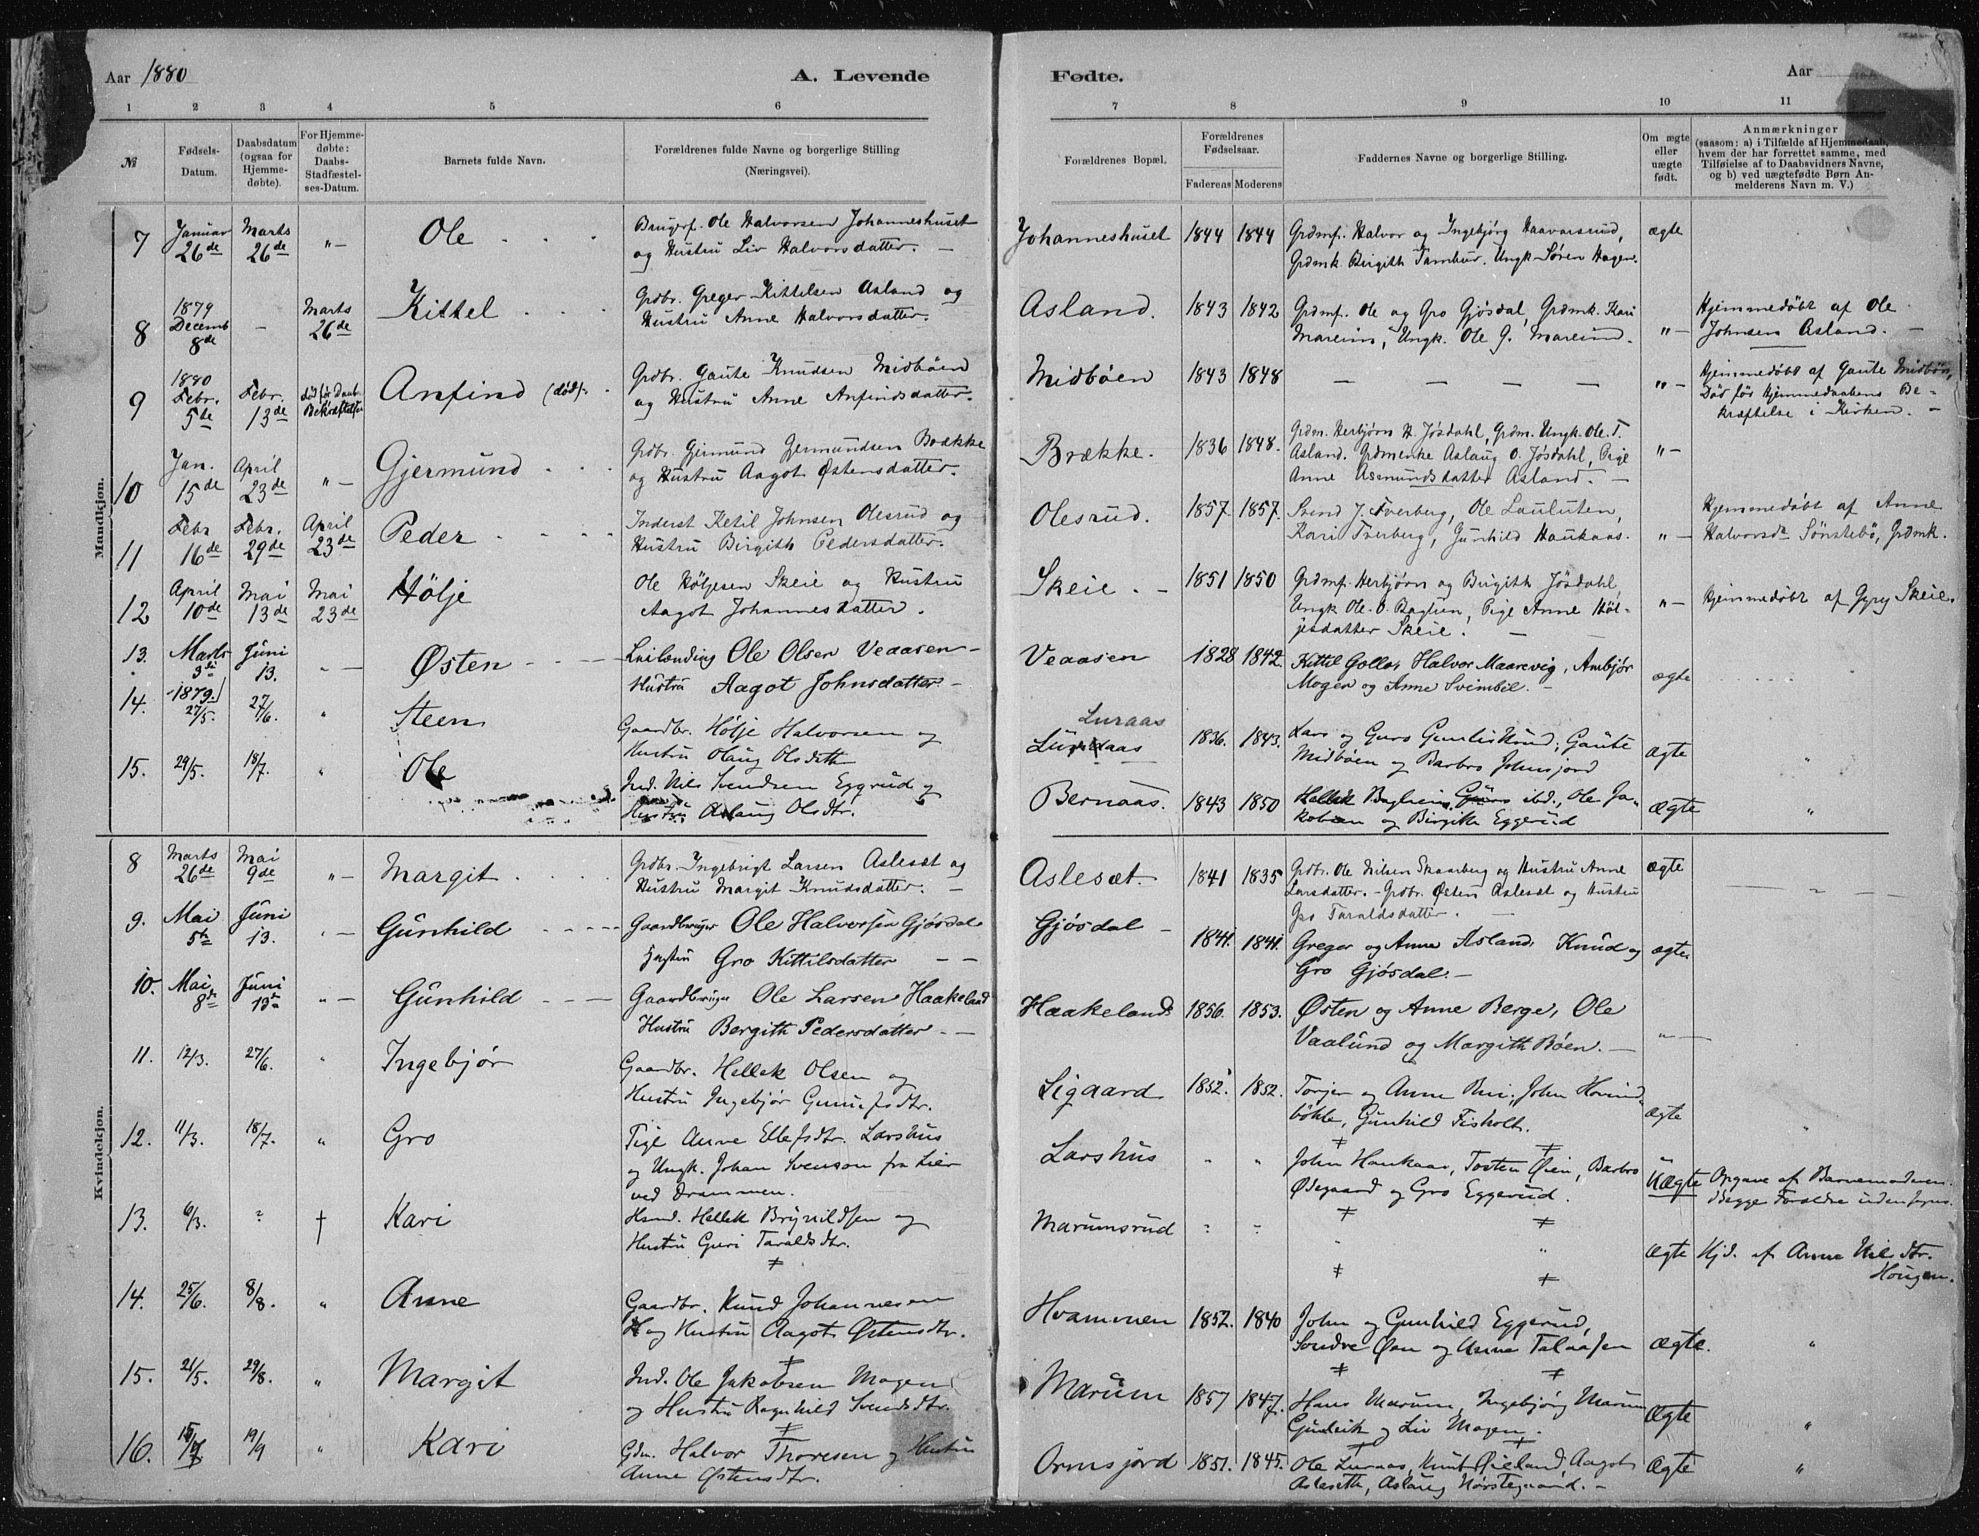 Aar 1880
A. Levende
Fødte.
Aar
1 2 3 4 5 6 7 8 9 10 11
№
Fødsels-Datum.
Daabsdatum (ogsaa for Hjemmedøbte).
For Hjemmedøbte: Daabs-Stadfæstelses-Datum.
Barnets fulde Navn.
Forældrenes fulde Navne og borgerlige Stilling (Næringsvei).
Forældrenes Bopæl.
Forældrenes Fødselsaar.
Faderens Moderens
Faddernes Navne og borgerlige Stilling.
Om ægte eller uægte født.
Anmærkninger
(saasom: a) i Tilfælde af Hjemmedaab,
hvem der har forrettet samme, med
Tilføielse af to Daabsvidners Navne,
og b) ved uægtefødte Børn An-
melderens Navn m. V.)
Mandkjøn.
7 Januar 26de Marts 26de "- Ole
Brugrf. Ole Halvorsen Johanneshuset
og Hustru Liv Halvorsdatter.
Johanneshuset 1844 1844
Grdmf. Halvor og Ingebjørg Haavarsrud,
Grdmk. Birgith Tambur. Ungk. Søren Hagen.
ægte
8 1879 Decemb 8de - Marts 26de Kittel
Grdbr. Greger Kittelsen Asland og
Hustru Anne Halvorsdatter.
Asland. 1843 1842
Grdmf. Ole og Gro Gjøsdal, Grdmk. Kari
Mareim, Ungk. Ole G. Mareim.
"-
Hjemmedøbt af Ole
Johnsen Asland.
9 1880 Febr. 5te Febr. 13de død før Daabs Bekræftelse Anfind (død).
Grdbr. Gaute Knudsen Midbøen
og Hustru Anne Anfindsdatter.
Midbøen 1843 1848
"-
Hjemmedøbt af Gaute Midbøn,
Død før Hjemmedaabens Be-
kræftelse i Kirken.
10 Jan. 15de April 23de "- Gjermund
Grdbr. Gjermund Gjermundsen Brække
og Hustru Aagot Østensdatter.
Brække. 1836 1848.
Grdm. Herbjørn H. Jøsdahl, Grdm. Ungk. Ole. T.
Asland. Grdmenke Aslaug O. Jøsdahl, Pige
Anne Asmundsdatter Asland.
"-
11 Febr 16de Febr. 29de April 23de Peder
Inderst Ketil Johnsen Olesrud og
Hustru Birgith Pedersdatter.
Olesrud. 1857. 1857.
Svend J. Tverberg, Ole Lauluten,
Kari Tverberg, Gunhild Haukaas.
"-
Hjemmedøbt af Anne
Halvorsdr Sønstebø, Grdmk.
12 April 10de Mai 13de Mai 23de Hølje
Ole Høljesen Skeie og Hustru
Aagot Johannesdatter.
Skeie. 1851 1850
Grdmf. Herbjørn og Birgith Jøsdahl,
Ungk Ole. O. Baglien, Pige Anne Høl-
jesdatter Skeie.
"-
Hjemmedøbt af Gyry Skeie.
13. Marts 3de Juni 13. Østen
Ole Olsen Veaasen
Hustru Aagot Johnsdatter
Veaasen 1828 1842.
Kittil Gollo, Halvor Maarevig, Ambjør
Mogen og Anne Svimbil.
ægte
14. 1879. 27/5. 27/6. " Steen
Gaardbr. Hølje Halvorsen og
Hustru Olaug Olsdtr
Luraas
Luraas 1836. 1843.
Lars og Guro Gunliksrud, Gaute
Midbøen og Barbro Johnsjord
Ægte
15. 29/5. 18/7. " Ole
Ind. Nils Svendsen Eggrud og
Hustru Aslaug Olsdtr.
Bernaas. 1843 1850
Hellek Baglien, Guro ibd., Ole Ja-
kobsen og Birgitte Eggerud
Ægte "
Kvindekjøn.
8 Marts 26de Mai 9de "- Margit
Grdbr. Ingebrigt Larsen Aslesæt og
Hustru Margit Knudsdatter.
Aslesæt. 1841 1835
Grdbr. Ole Nilsen Skaarberg og Hustru Anne
Larsdatter. - Grdbr. Østen Aslesæt og Hustru
Gro Taraldsdatter.
ægte
9. Mai 5te Juni 13. Gunhild
Gaardbruger Ole Halvorsen Gjøsdal
Hustru Gro Kittilsdatter
Gjøsdal 1841. 1841.
Greger og Anne Asland, Knud og
Gro Gjøsdal.
ægte
10. Mai 8de Juni 13de "- Gunhild
Gaardbruger Ole Larsen Haakeland
Hustru Bergith Pedersdatter
Haakeland 1856. 1853.
Østen og Anne Berge, Ole
Vaalund og Margith Bøen.
"-
11. 12/3. 27/6. " Ingebjør
Gaardbr. Hellek Olsen og
Hustru Ingebjør Gunulfsdtr.
Ligaard 1852. 1852.
Torjer og Anne Bui, John Hovind-
bøkke, Gunhild Fisholt.
ægte
12. 11/3. 18/7. " Gro
Pige Anne Ellefsdtr. Larshus
og Ungk. Johan Svenson fra Lier
ved Drammen.
Larshus " "
John Haukaas, Tosten Øien, Barbro
Ødegaard og Gro Eggerud.
Uægte
Opgave af Barnemoderen.
Begge Forældre udenfor
13. 6/3. ? † Kari
Hellek Brynildsen og
Hustru Guri Taraldsdtr.
Marumsrud
ægte
Hjd. af Anne Nilsdtr.
Hougen.
14. 25/6. 8/8. " Anne
Gaardbr. Knud Johannesen
og Hustru Aagot Østensdtr.
Hvammen 1852. 1840
John og Gunhild Eggerud,
Sondre Øen og Anne Talaasen
Ægte. "
15. 21/5. 29/8. " Margit
Ind. Ole Jakobsen Mogen
og Hustru Ragnhild Svendsdtr.
Marum 1857 1847.
Hans Marum, Ingebjørg Marum
Gunleik og Liv Mogen.
Ægte "
16. 19/9 " Kari
Gdm. Halvor Thoresen og Hustru
Anne Østensdtr.
Ormsjord 1851. 1845.
Ole Luraas, Knut Øieland, Aagot
Aslesetth, Aslaug Nørstegaard.
Ægte "